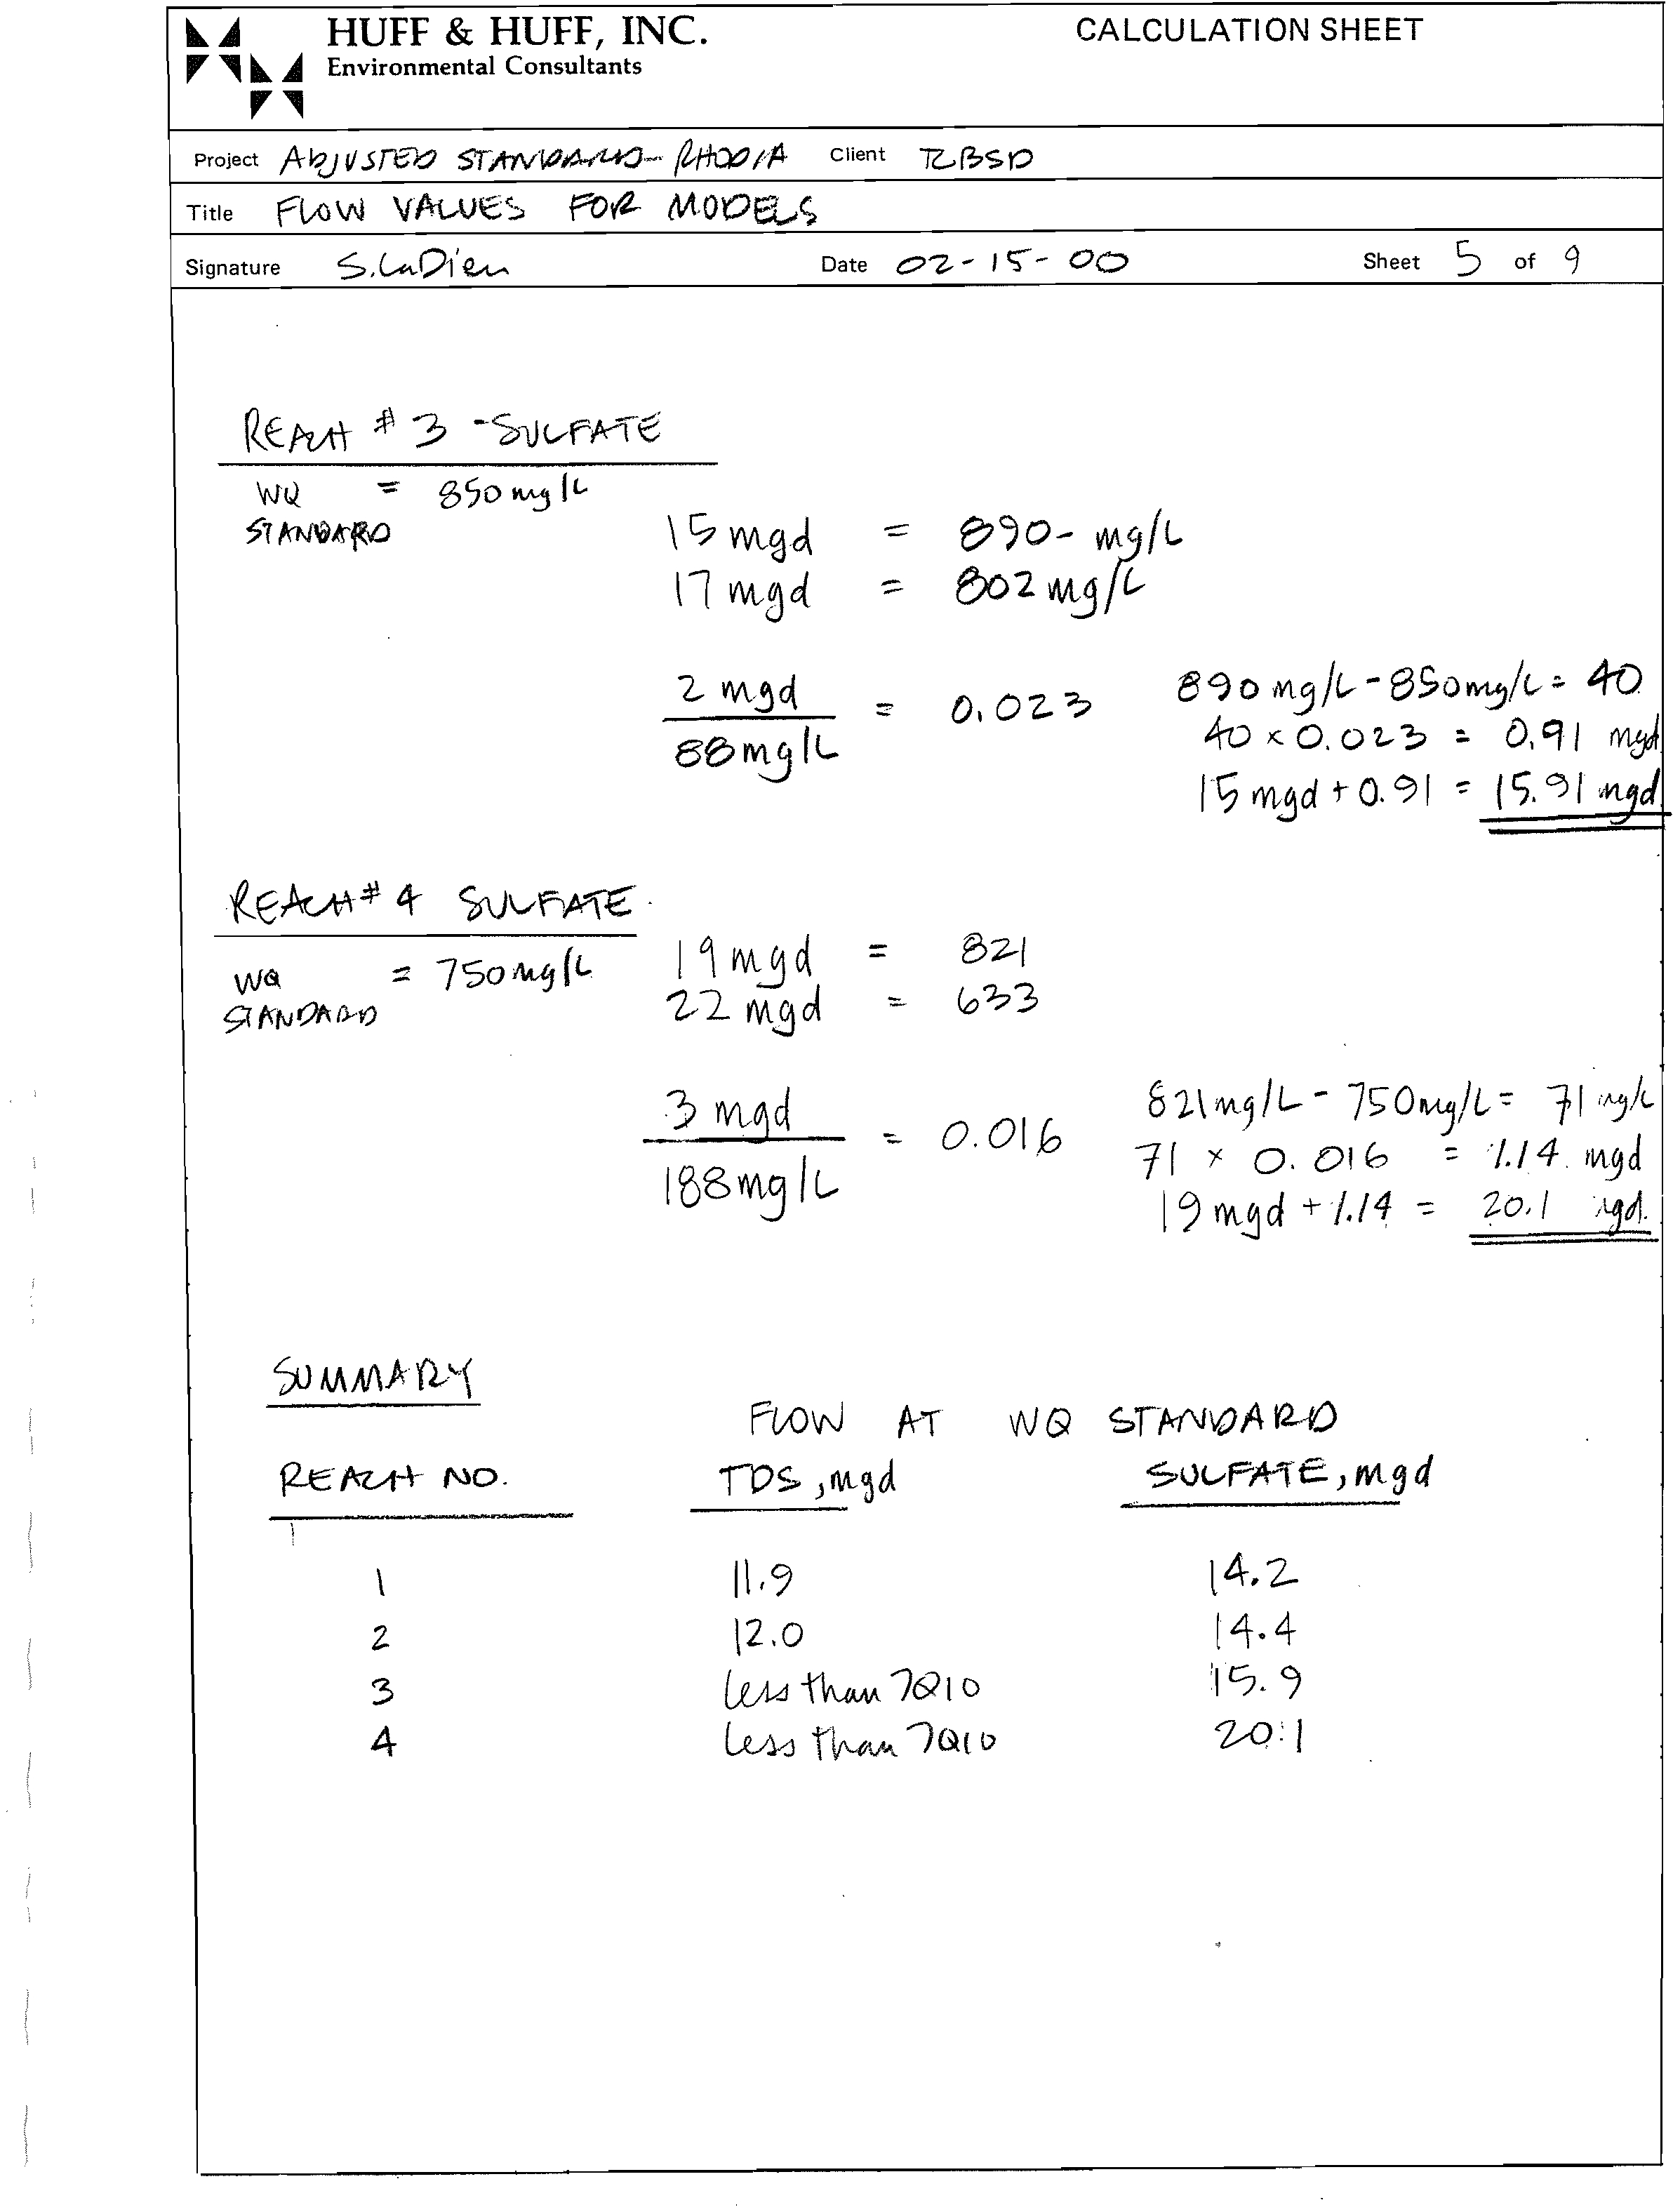 HUFF & HUFF, INC.
Environmental Consultants
CALCULATION SHEET
Project ADJUSTED STANDARD - RHODIA Client TCBSD
Title FLOW VALUES FOR MODELS
Signature S.LaDieu Date 02-15-00 Sheet 5 of 9
REACH # 3 - SULFATE
WQ = 850 mg/L
STANDARD
15 mgd = 890- mg/L
17 mgd = 802 mg/L
2 mgd
88 mg/L
= 0.023
890 mg/L - 850 mg/L = 40
40 x 0.023 = 0.91 mgd
15 mgd + 0.91 = 15.91 mgd
REACH # 4 SULFATE
WQ = 750 mg/L
STANDARD
19 mgd = 821
22 mgd = 633
3 mgd
188 mg/L
= 0.016
821 mg/L - 750 mg/L = 71 mg/L
71 x 0.016 = 1.14 mgd
19 mgd + 1.14 = 20.1 mgd
SUMMARY
FLOW AT WQ STANDARD
REACH NO. TDS, mgd SULFATE, mgd
1 11.9 14.2
2 12.0 14.4
3 less than 7Q10 15.9
4 less than 7Q10 20.1